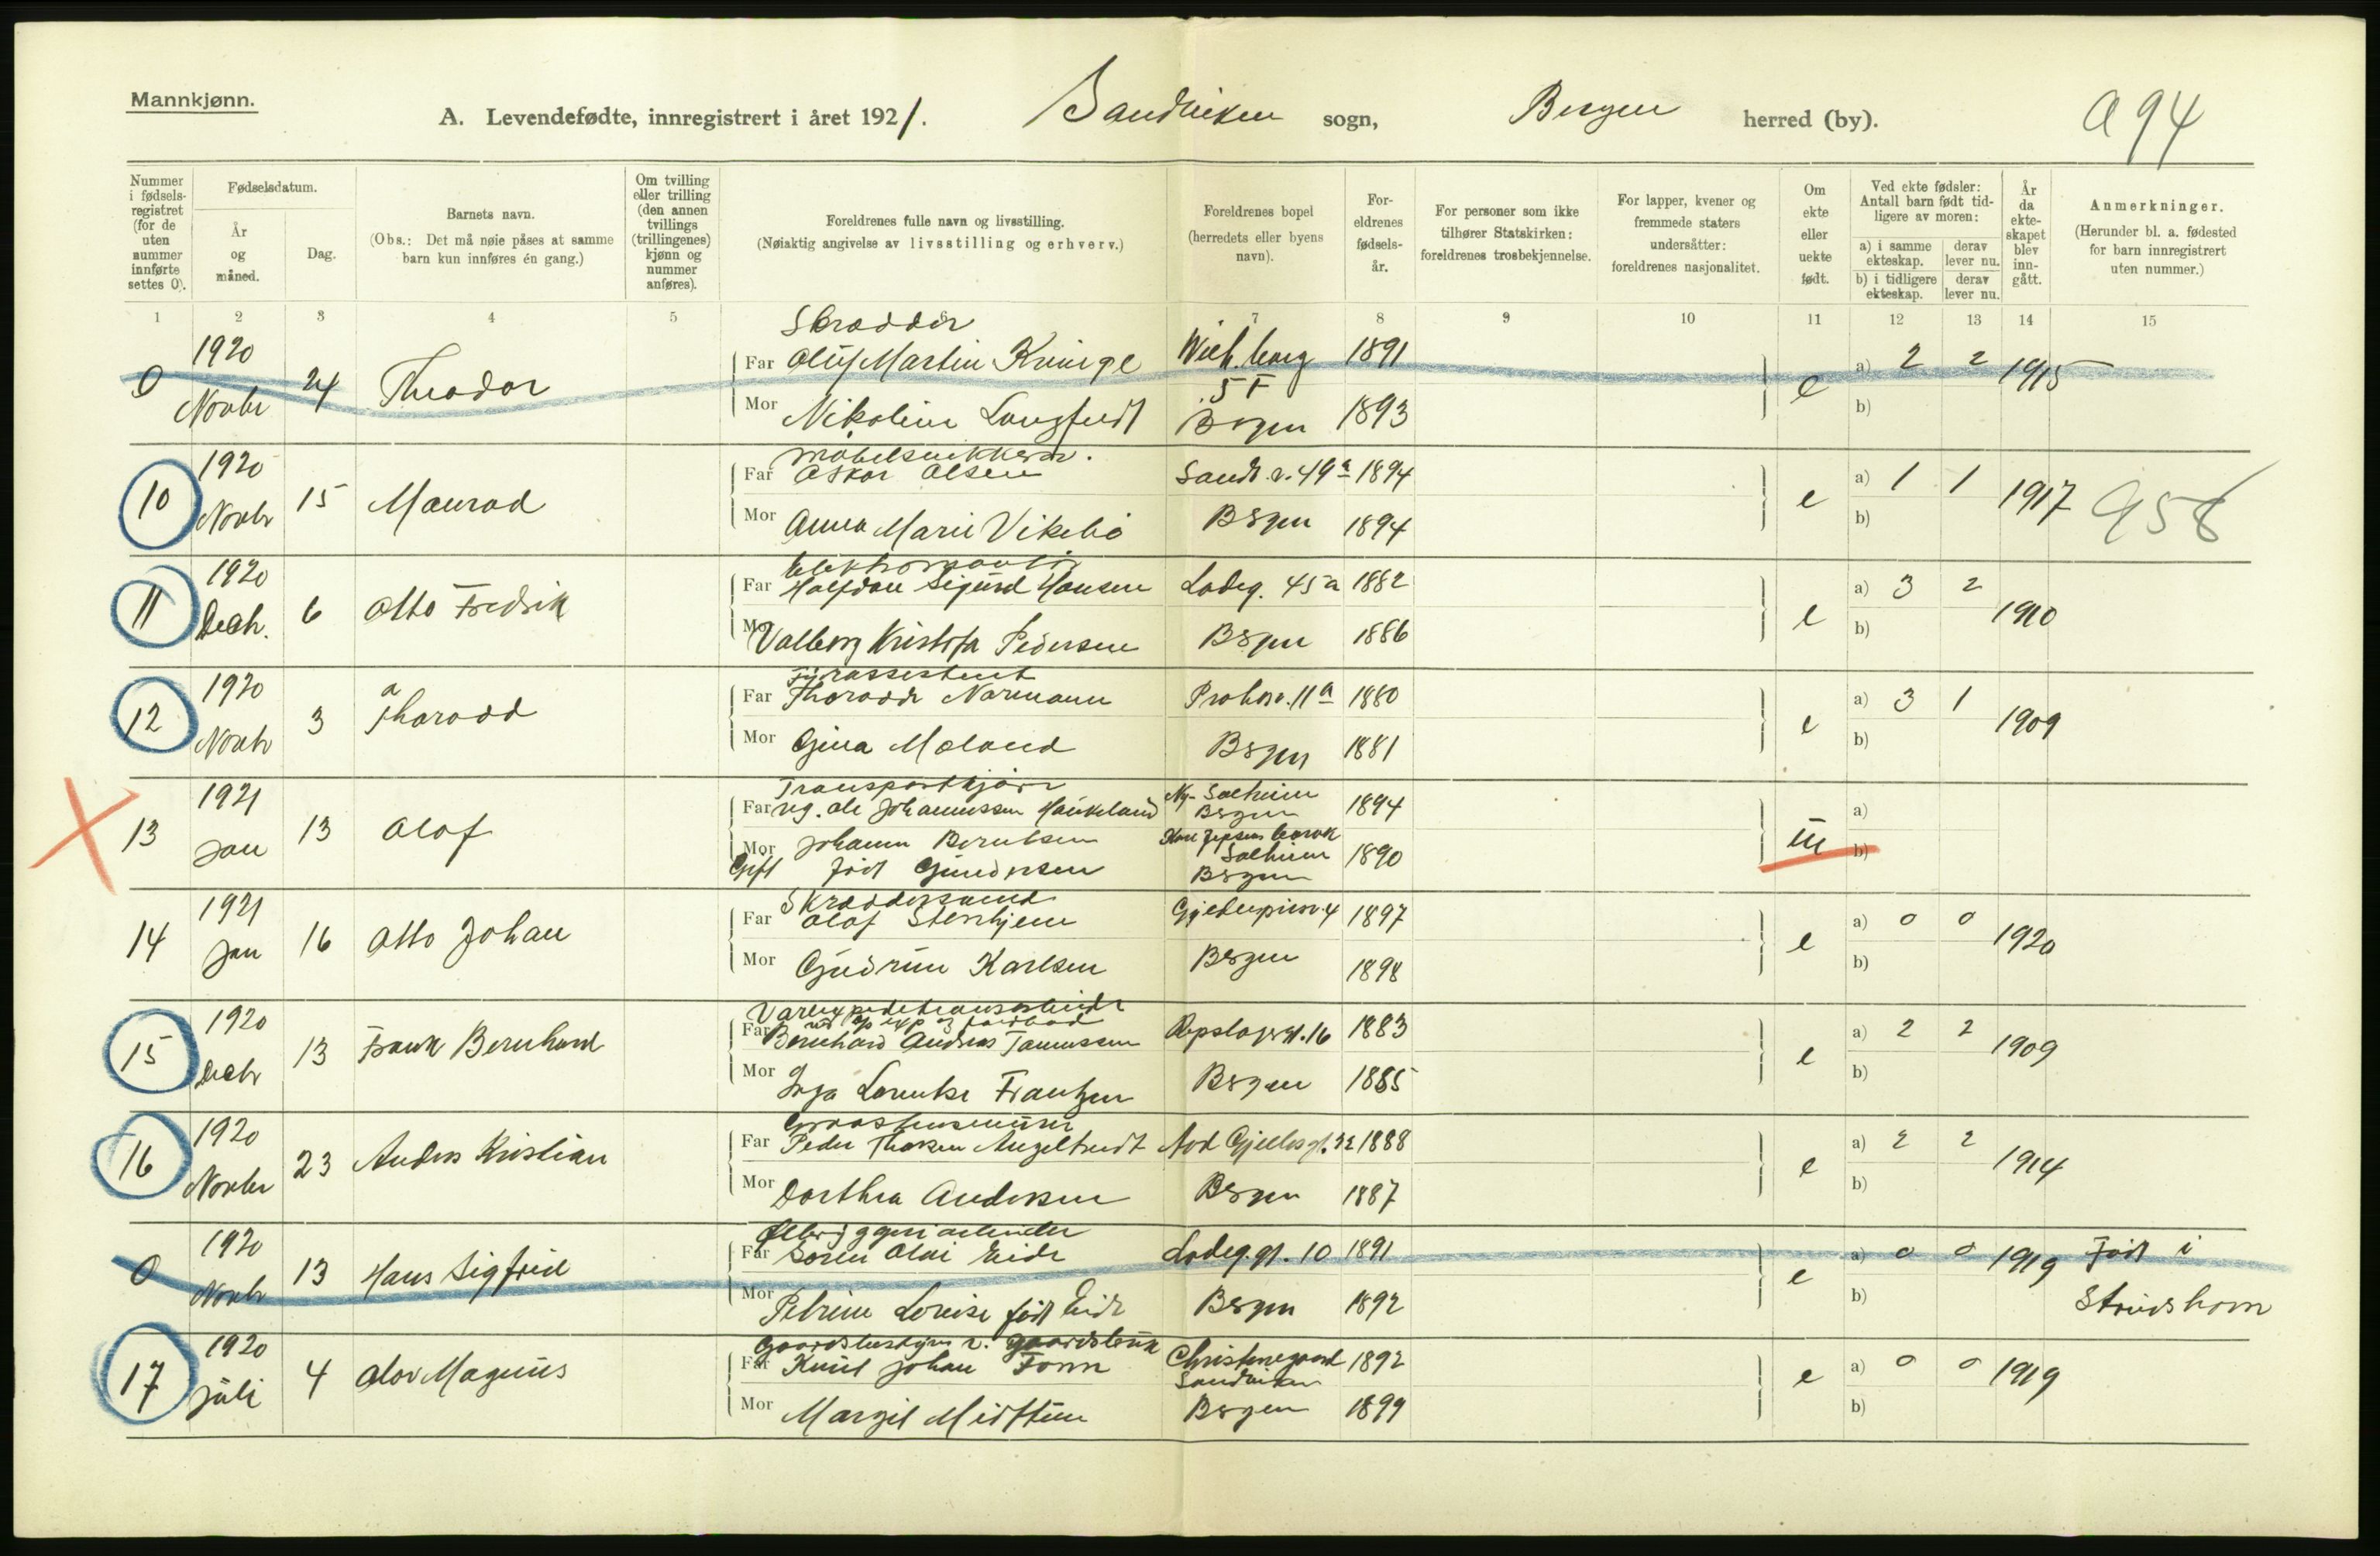 Mannkjønn.
A. Levendefødte, innregistrert i året 1921. Sandviken sogn, Bergen herred (by).
A 94
Nummer i fødselsregistret (for de uten nummer innførte settes 0).
Fødselsdatum.
År og måned.
Dag.
Barnets navn.
(Obs.: Det må nøie påses at samme barn kun innføres én gang.)
Om tvilling eller trilling (den annen tvillings (trillingenes) kjønn og nummer anføres).
Foreldrenes fulle navn og livsstilling.
(Nøiaktig angivelse av livsstilling og erhverv.)
Foreldrenes bopel (herredets eller byens navn).
Foreldrenes fødselsår.
For personer som ikke tilhører Statskirken: foreldrenes trosbekjennelse.
For lapper, kvener og fremmede staters undersåtter: foreldrenes nasjonalitet.
Om ekte eller uekte født.
Ved ekte fødsler: Antall barn født tidligere av moren:
a) i samme ekteskap. derav lever nu.
b) i tidligere ekteskap. derav lever nu.
År da ekteskapet blev inngått.
Anmerkninger.
(Herunder bl. a. fødested for barn innregistrert uten nummer.)
1 2 3 4 5 7 8 9 10 11 12 13 14 15
Skrædder
0 1920 Novbr 24 Theodor Far Oluf Martin 1891 e a) 2 2 1915
5 F
Mor Nikoline Bergen 1893 b)
Møbelsnekker.
10 1920 Novbr 15 Monrad Far Oskar Olsen Sandv. v. 49a 1894 e a) 1 1 1917 958
Mor Anna Marie Vikebø Bergen 1894 b)
Elektromontør
11 1920 Decbr. 6 Otto Fredrik Far Halfdan Sigurd Hansen Ladeg. 45a 1882 e a) 3 2 1910
Mor Valborg Kristofa Pedersen Bergen 1886 b)
Fyrassistent
12 1920 Novbr 3 Tharodd a Far Thorodd Normann 11a 1880 e a) 3 1 1909
Mor Gina Moland Bergen 1881 b)
Transportkjører
13 1921 Jan 13 Olaf Far ug. Ole Johannessen Haukeland Ny- Solheim Bergen 1894 u a)
Mor Johanne Berntsen Solheim Bergen 1890 b)
Gift født Gundersen
Skræddersvend
14 1921 Jan 16 Otto Johan Far Olaf Stenhjem 4 1897 e a) 0 0 1920
Mor Gudrun Karlsen Bergen 1898 b)
15 1920 Decbr 13 Frank Bernhard Far Bernhard Andreas Repslagergt. 16 1883 e a) 2 2 1909
Mor Inga Lorentse Frantzen Bergen 1885 b)
16 1920 Novbr 23 Anders Kristian Far Peder Angeltveit Nod Gjellesgt. 22 1888 e a) 2 2 1914
Mor Dorthea Andersen Bergen 1887 b)
Ølbryggeriarbeider
0 1920 Novbr 13 Hans Sigfred Far Søren Olai Eide Ladeg.gt. 10 1891 e a) 0 0 1919 Født i
Mor Petrine Lovise født Eide Bergen 1892 b) Strudshavn
Gaardsbestyrer v. gaardsbruk
17 1920 juli 4 Olav Magnus Far Knut Johan Fonn Christinegaard Sandviken 1892 e a) 0 0 1919
Mor Margit Midttun Bergen 1899 b)